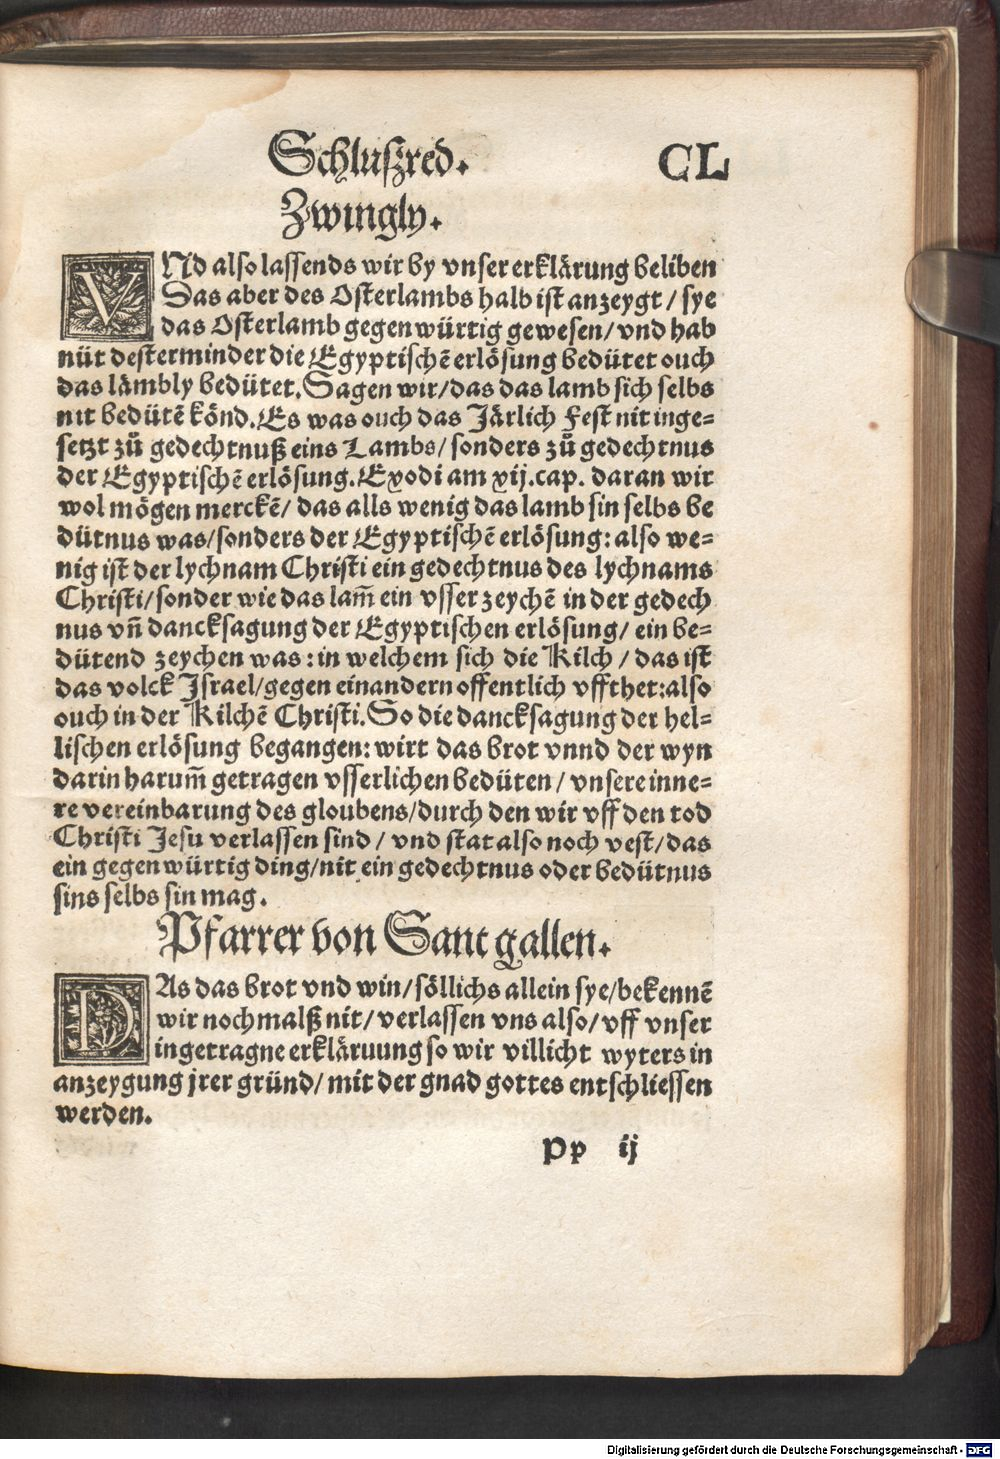 Schluſzred. CL
Zwingly.
VNd also lassends wir by vnser erklärung beliben
Das aber des Osterlambs halb ist anzeygt / sye
das Osterlamb gegenwürtig gewesen / vnd hab
nüt desterminder die Egyptischē erlösung bedütet ouch
das lämbly bedütet. Sagen wir / das das lamb sich selbs
nit bedütē könd. Es was ouch das Järlich Fest nit inge=
setzt zů gedechtnuß eins Lambs / sonders zů gedechtnus
der Egyptischē erlösung. Exodi am xij. cap. daran wir
wol mögen merckē / das alls wenig das lamb sin selbs be
dütnus was / sonders der Egyptischē erlösung: also we=
nig ist der lychnam Christi ein gedechtnus des lychnams
Christi / sonder wie das lam̄ ein vsser zeychē in der gedech
nus vn̄ dancksagung der Egyptischen erlösung / ein be=
dütend zeychen was: in welchem sich die Kilch / das ist
das volck Israel / gegen einandern offentlich vffthet: also
ouch in der Kilchē Christi. So die dancksagung der hel=
lischen erlösung begangen: wirt das brot vnnd der wyn
darin harum̄ getragen vsserlichen bedüten / vnsere inne=
re vereinbarung des gloubens / durch den wir vff den tod
Christi Jesu verlassen sind / vnd stat also noch vest / das
ein gegenwürtig ding / nit ein gedechtnus oder bedütnus
sins selbs sin mag.
Pfarrer von Sant gallen.
DAs das brot vnd win / söllichs allein sye / bekennē
wir nochmalß nit / verlassen vns also / vff vnser
ingetragne erkläruung so wir villicht wyters in
anzeygung jrer gründ / mit der gnad gottes entschliessen
werden.
Pp ij
Digitalisierung gefördert durch die Deutsche Forschungsgemeinschaft - DFG